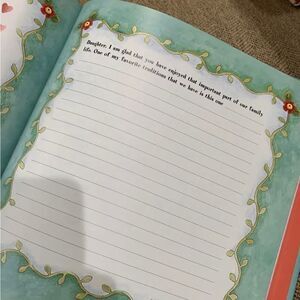 Daughter, I am glad that you have enjoyed that important part of our family
life. One of my favorite traditions that we have is this one